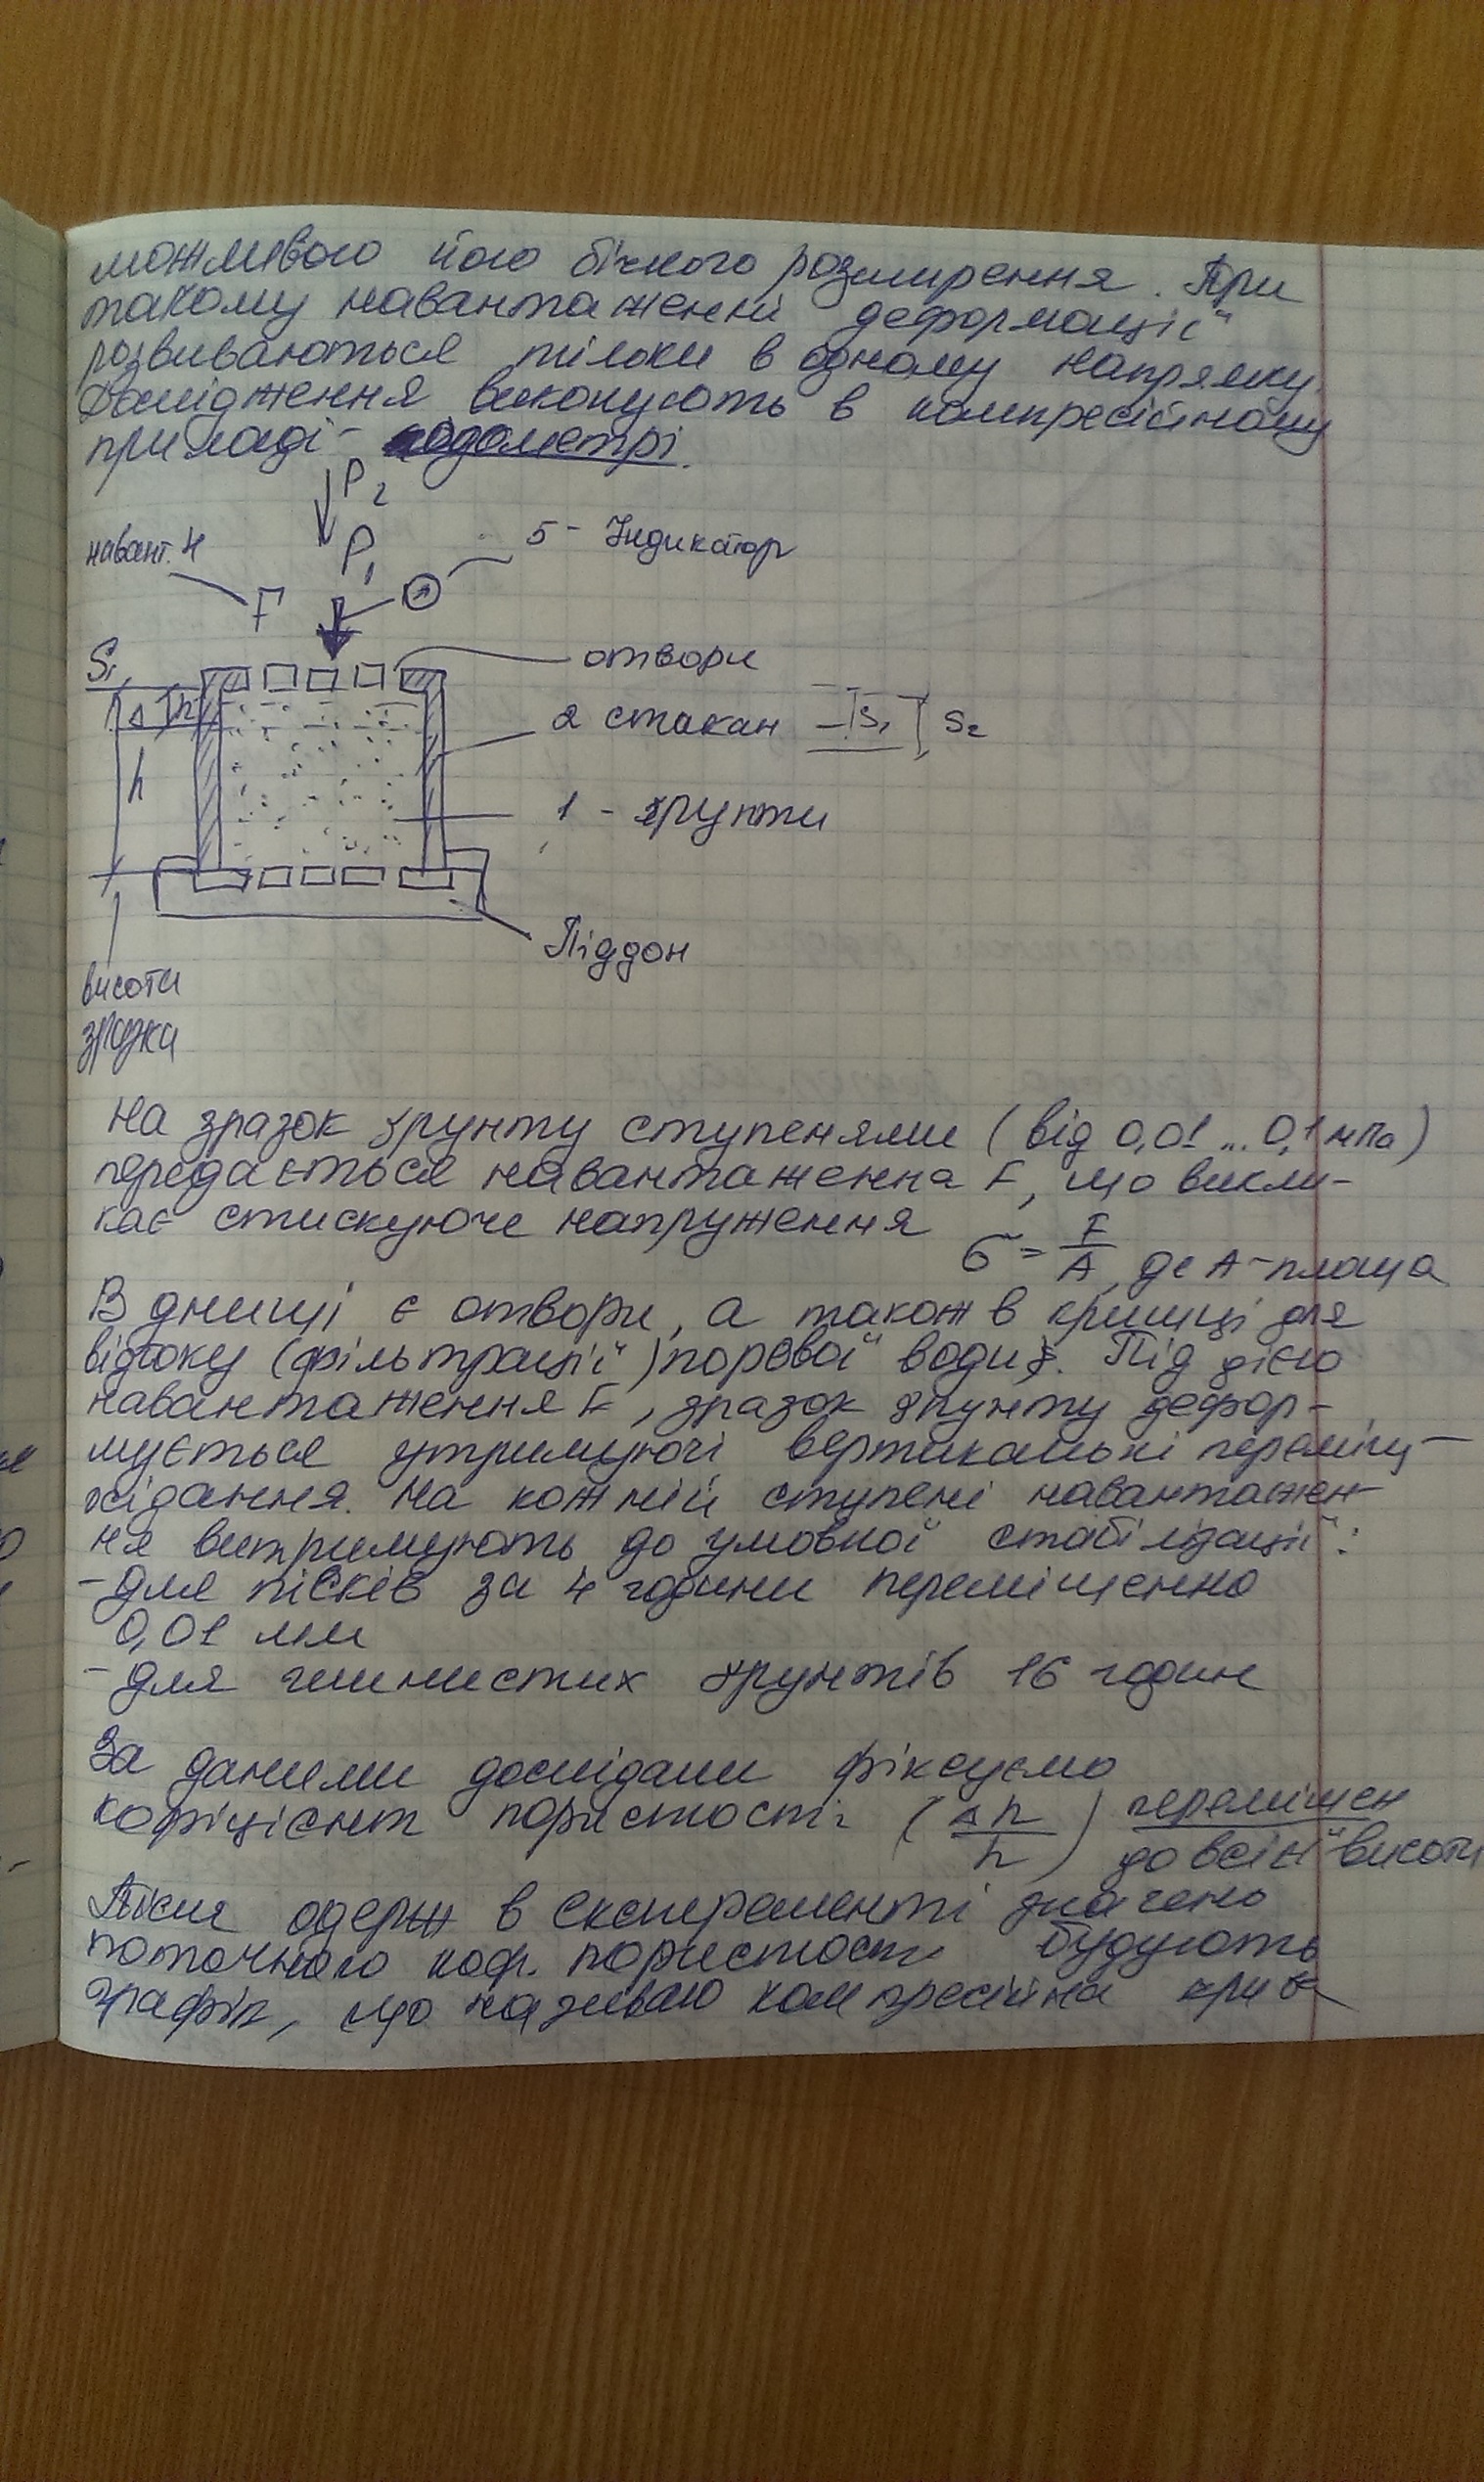 можливого його бічного розширення. При
такому навантаженні деформації
розвиваються тільки в одному напрямку.
Дослідження виконують в компресійному
приладі - одометрі.
P2
навант. 4
P1
5 - Індикатор
F
S1
отвори
Δ h
2 стакан
S1
S2
h
1 - ґрунти
Піддон
висота
зразка
На зразок ґрунту ступенями (від 0,01 ... 0,1 мПа)
передається навантаження F, що викли-
кає стискуюче напруження
σ = F/A, де А - площа
В днищі є отвори, а також в кришці для
відтоку (фільтрації) порової води. Під дією
навантаження F, зразок ґрунту дефор-
мується утримуючі вертикальні переміщ-
осідання. На кожній ступені навантажен-
ня витримують до умовної стабілізації:
- для пісків за 4 години переміщенно
0,01 мм
- для глинистих ґрунтів 16 годин
За даними дослідами фіксуємо
кофіцієнт пористості (Δh/h) переміщен
до всій висоти
Після одерж в експеременті значено
поточного коф. пористости будують
графік, що називаю компресійна крив